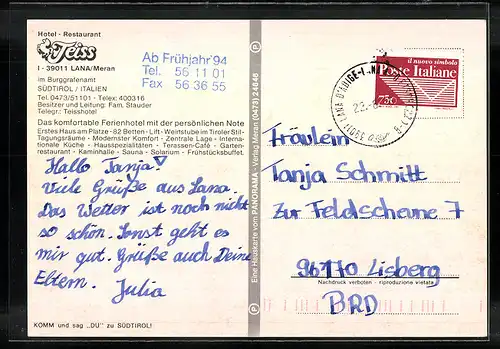 Hotel - Restaurant
Teiss
I - 39011 LANA/Meran
im Burggrafenamt
SÜDTIROL / ITALIEN
Tel. 0473/51101 - Telex: 400316
Besitzer und Leitung: Fam. Stauder
Telegr.: Teisshotel
Ab Frühjahr '94
Tel. 56 11 01
Fax 56 36 55
Das komfortable Ferienhotel mit der persönlichen Note
Erstes Haus am Platze - 82 Betten - Lift - Weinstube im Tiroler Stil -
Tagungsräume - Modernster Komfort - Zentrale Lage - Interna-
tionale Küche - Hausspezialitäten - Terassen-Café - Garten-
restaurant - Kaminhalle - Sauna - Solarium - Frühstücksbuffet.
Hallo Tanja!
Viele Grüße aus Lana.
Das Wetter ist noch nicht
so schön. Sonst geht es
mir gut. Grüße auch Deine
Eltern. Julia
KOMM und sag „DU" zu SÜDTIROL!
Eine Hauskarte vom PANORAMA - Verlag Meran (0473) 24646
il nuovo simbolo
Poste Italiane
750
LANA D'ADIGE
Fräulein
Tanja Schmitt
Zur Feldscheune 7
96170 Lisberg
Nachdruck verboten - riproduzione vietata
BRD